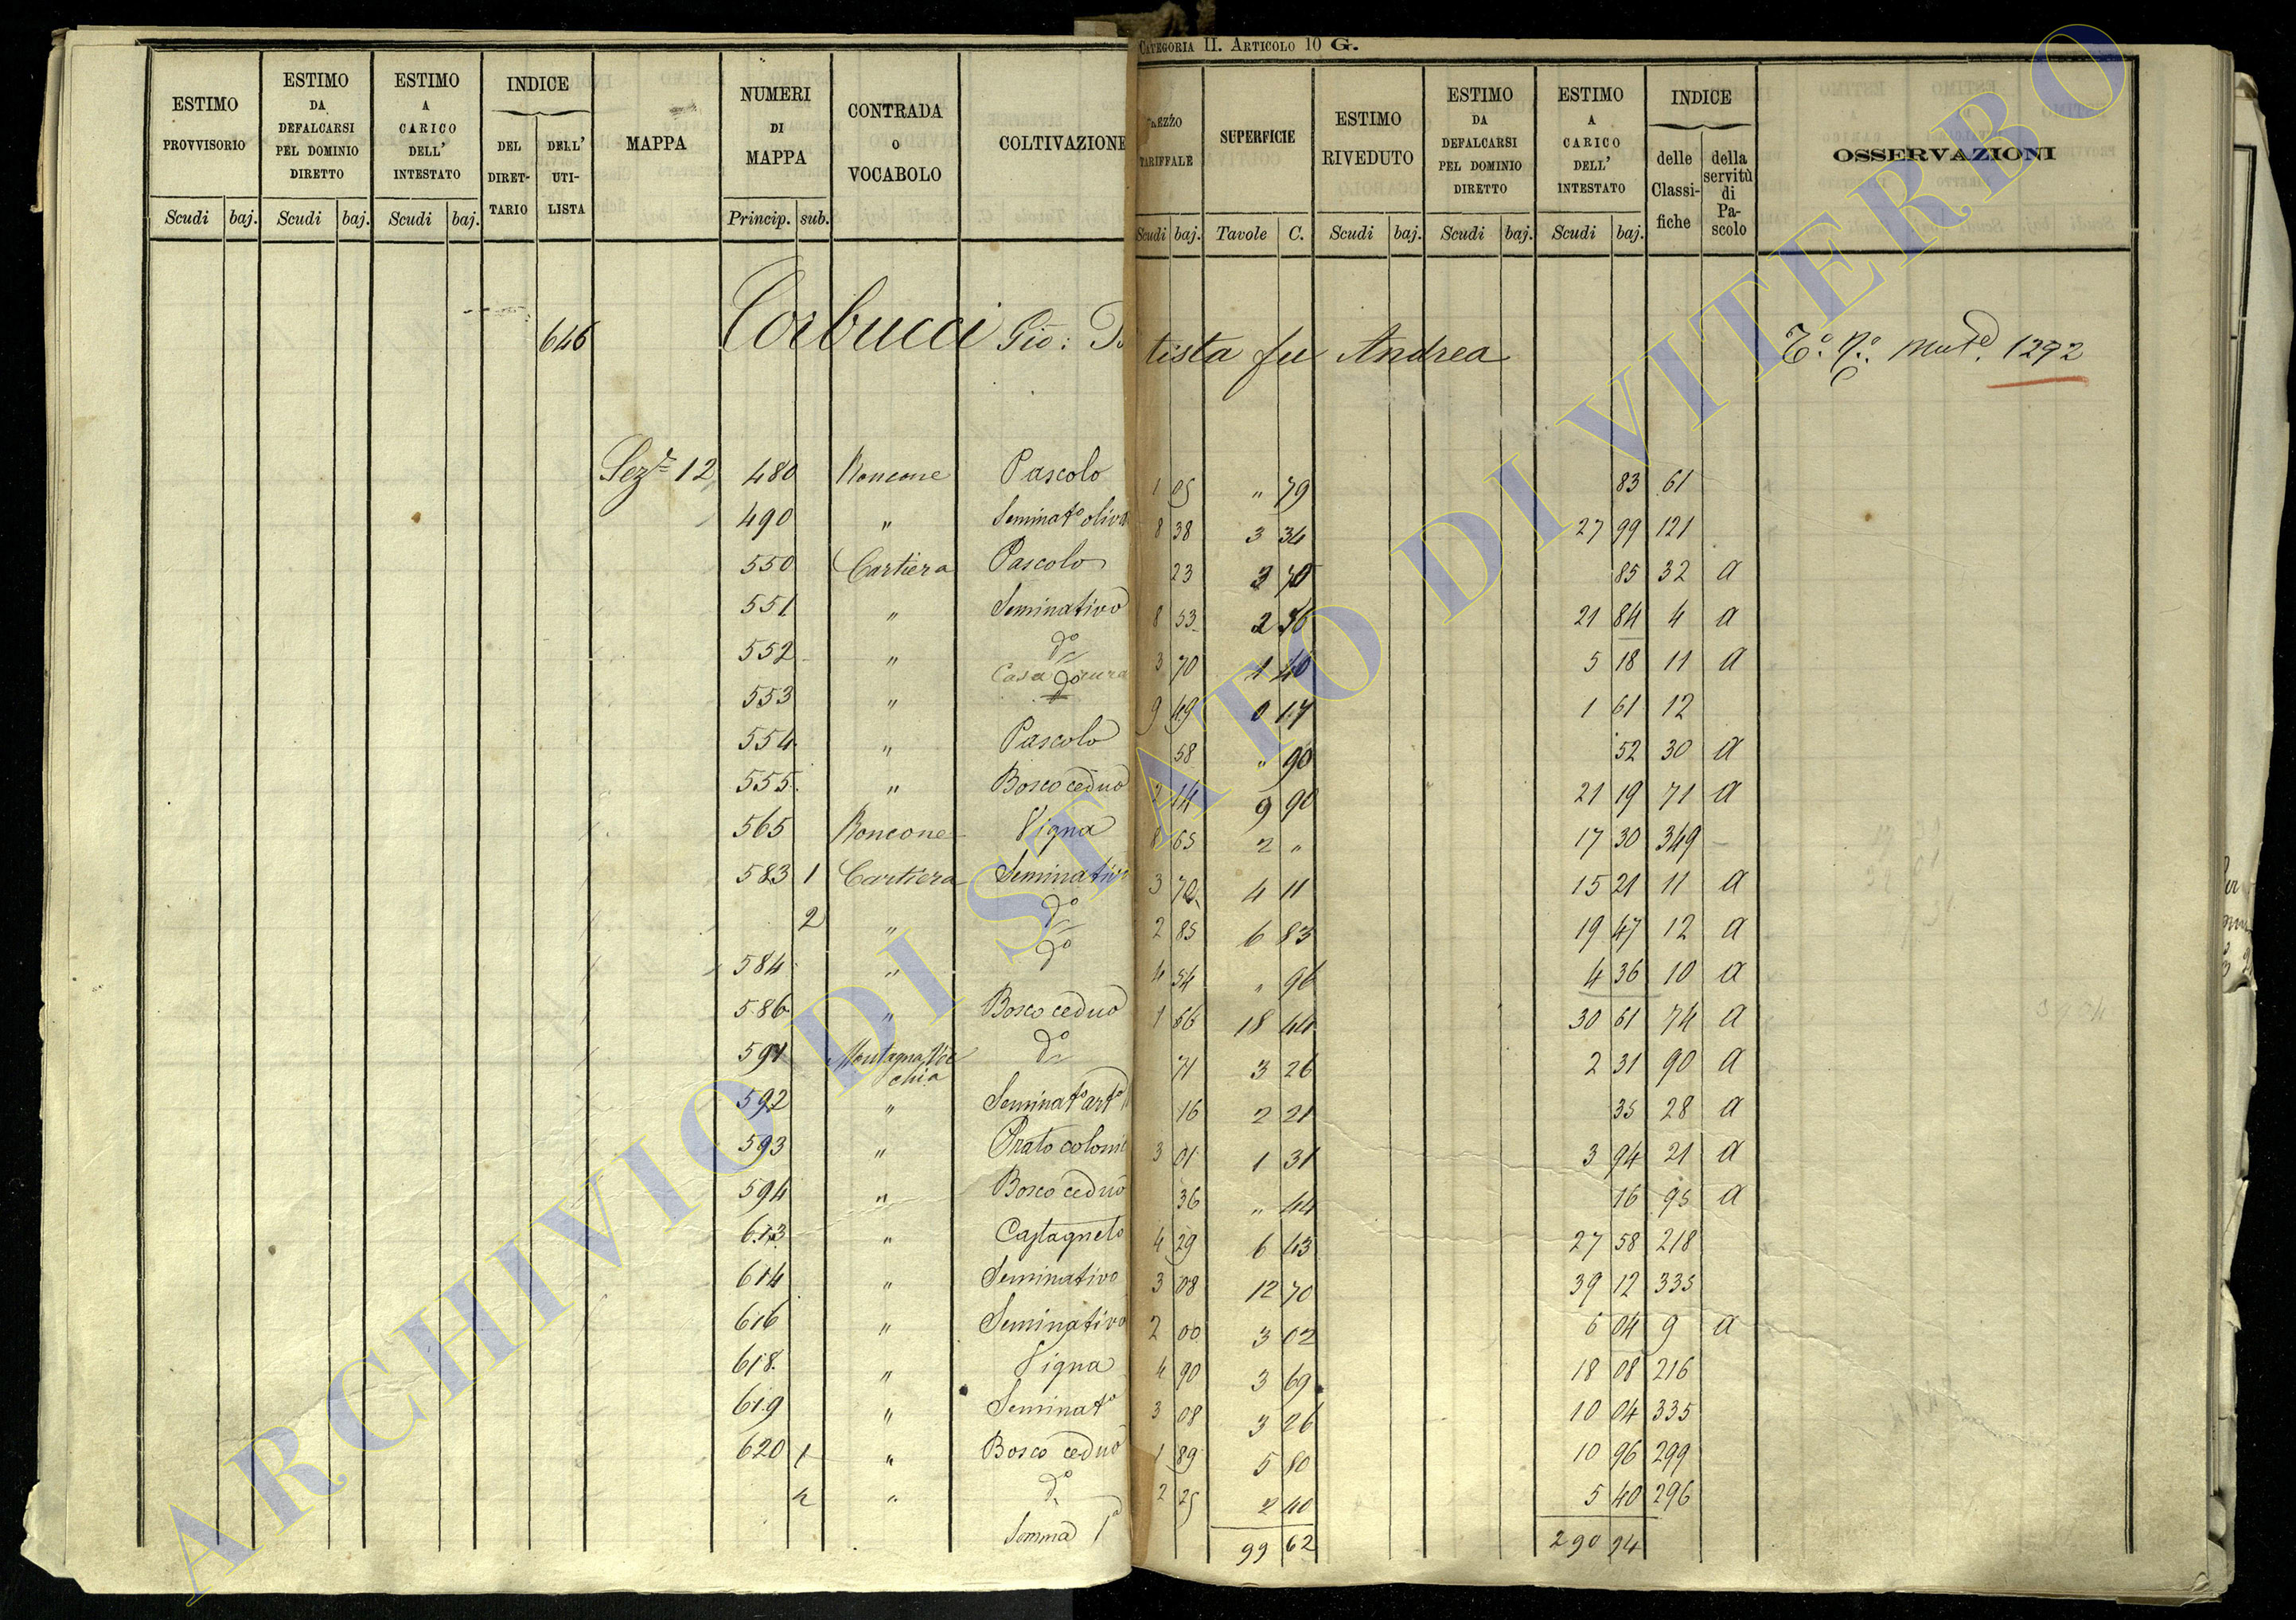 CATEGORIA II. ARTICOLO 10 G.
ESTIMO PROVVISORIO
ESTIMO DA DEFALCARSI PEL DOMINIO DIRETTO
ESTIMO A CARICO DELL' INTESTATO
INDICE
DEL DIRET-TARIO
DELL' UTI-LISTA
MAPPA
NUMERI DI MAPPA
CONTRADA O VOCABOLO
COLTIVAZIONE
TARIFFALE
SUPERFICIE
ESTIMO RIVEDUTO
ESTIMO DA DEFALCARSI PEL DOMINIO DIRETTO
ESTIMO A CARICO DELL' INTESTATO
INDICE
delle Classi-fiche
della servitù di Pa-scolo
OSSERVAZIONI
Scudi baj. Scudi baj. Scudi baj. Princip. sub. Scudi baj. Tavole C. Scudi baj. Scudi baj. Scudi baj.
646 Corbucci Gio: tista fu Andrea 1292
Sez.e 12 480 Roncone Pascolo 1 05 " 79 83 61
490 " Seminat.o oliva 8 38 3 34 27 99 121
550 Cartiera Pascolo 23 3 70 85 32 a
551 " Seminativo 8 53 2 56 21 84 4 a
552 " d.o 3 70 1 40 5 18 11 a
553 " Casa 9 49 0 17 1 61 12
554 " Pascolo 58 " 90 52 30 a
555 " Bosco ceduo 2 14 9 90 21 19 71 a
565 Roncone Vigna 8 65 2 " 17 30 349
583 1 Cartiera Seminativo 3 70 4 11 15 21 11 a
2 " d.o 2 85 6 83 19 47 12 a
584 " d.o 4 54 " 96 4 36 10 a
586 " Bosco ceduo 1 66 18 44 30 61 74 a
591 Montagna Vec chia d.o 71 3 26 2 31 90 a
592 " Seminat.o art.o 16 2 21 35 28 a
593 " Prato 3 01 1 31 3 94 21 a
594 " Bosco ceduo 36 " 44 16 95 a
613 " Castagneto 4 29 6 43 27 58 218
614 " Seminativo 3 08 12 70 39 12 335
616 " Seminativo 2 00 3 02 6 04 9 a
618 " Vigna 4 90 3 69 18 08 216
619 " Seminat.o 3 08 3 26 10 04 335
620 1 " Bosco ceduo 1 89 5 80 10 96 299
2 " d.o 2 25 2 40 5 40 296
Somma 1.a 99 62 290 94
ARCHIVIO DI STATO DI VITERBO